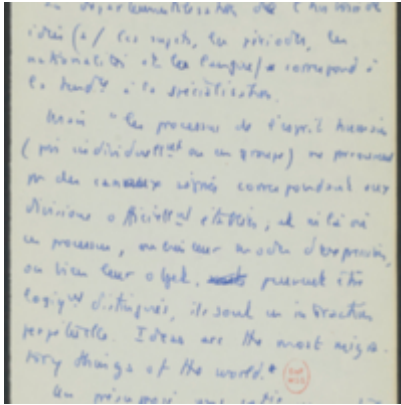 la départementalisation de l'histoire
idées (s/ les sujets, les périodes, les
nationalités et les langues) correspond à
la tendce à la spécialisation.
Mais "les processus de l'esprit humain
(pris individuellemt ou en groupe) ne
par des canaux séparés correspondant aux
divisions officiellemt établies, et même où
ces processus, ou bien leur modes d'expression,
ou bien leur objet, peuvent être
logiqt distingués, ils sont en interaction
perpétuelle. Ideas are the most migra-
tory things of the world."
Un présupposé